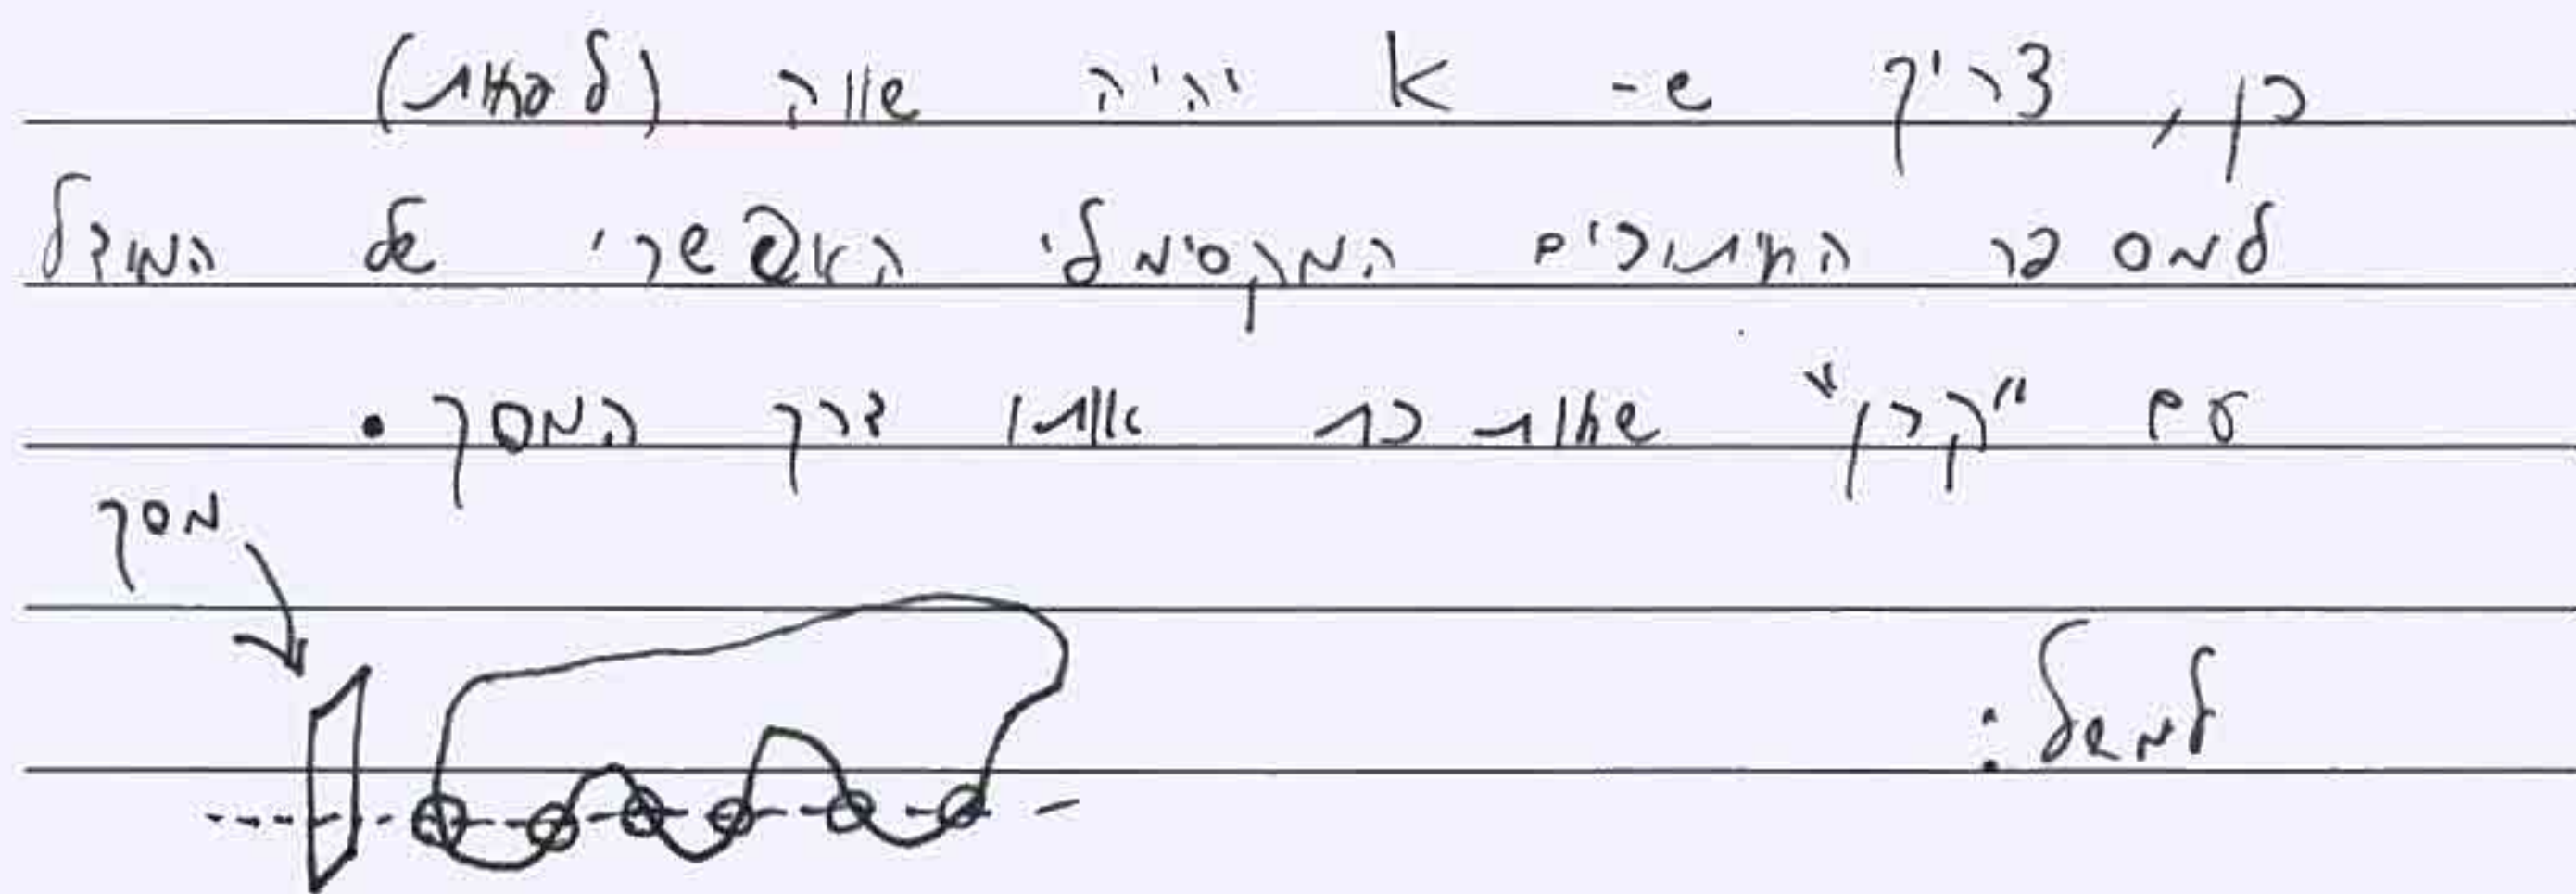 כן, צריך ש- k יהיה שווה (לפחות)
למספר החיתוכים המקסימלי האפשרי של המודל
עם "קרן" שחותכת אותו דרך המסך.
מסך
למשל: